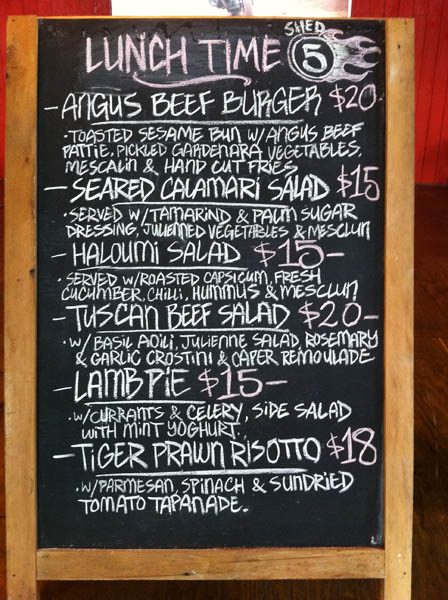 LUNCH TIME SHED 5
- ANGUS BEEF BURGER $20-
• TOASTED SESAME BUN W/ANGUS BEEF
PATTIE, PICKLED GARDENARA VEGETABLES,
MESCALIN & HAND CUT FRIES
- SEARED CALAMARI SALAD $15
• SERVED W/TAMARIND & PALM SUGAR
DRESSING, JULIENNED VEGETABLES & MESCLUN
- HALOUMI SALAD $15-
• SERVED W/ROASTED CAPSICUM, FRESH
CUCUMBER, CHILLI, HUMMUS & MESCLUN
- TUSCAN BEEF SALAD $20-
• W/ BASIL AOILI, JULIENNE SALAD ROSEMARY
& GARLIC CROSTINI & CAPER REMOULADE
- LAMB PIE $15-
• W/CURRANTS & CELERY, SIDE SALAD
WITH MINT YOGHURT.
- TIGER PRAWN RISOTTO $18
• W/PARMESAN, SPINACH & SUNDRIED
TOMATO TAPANADE.